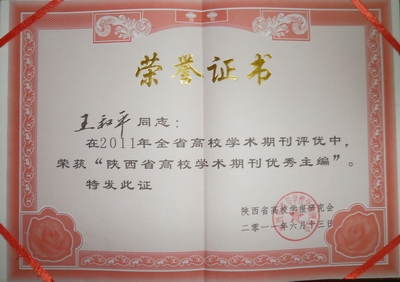 荣誉证书
王和平同志：
在2011年全省高校学术期刊评优中，
荣获“陕西省高校学术期刊优秀主编”。
特发此证
陕西省高校学报研究会
二零一一年六月十三日